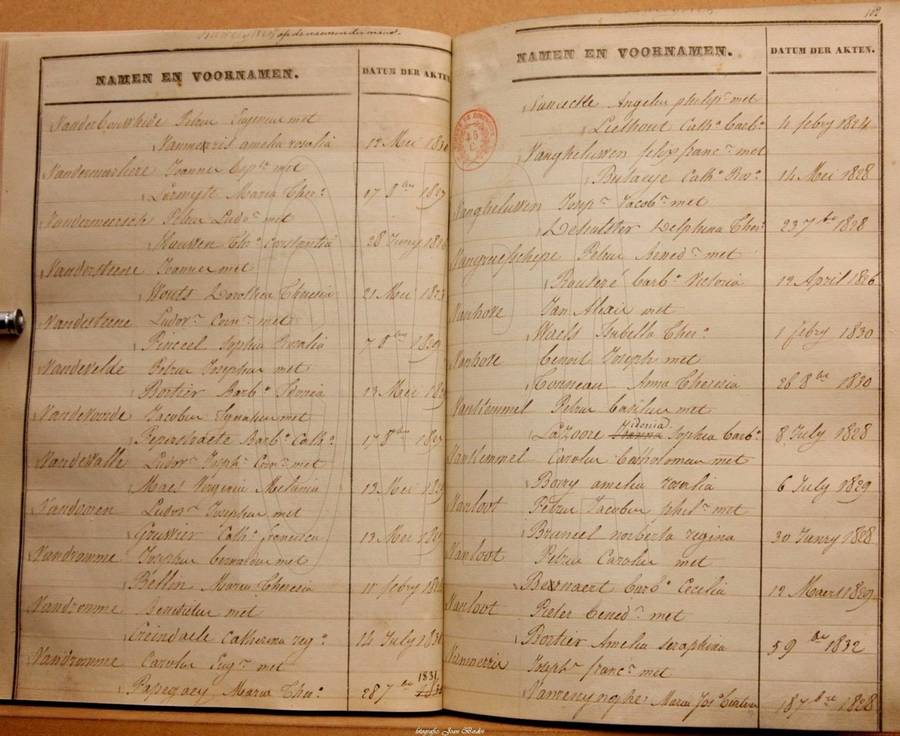 op de naeme der mans.
NAMEN EN VOORNAMEN. DATUM DER AKTEN.
Vanderbouwhede Petrus Eugenius met
Vanmerris amelia rosalia 12 Mei
Vandermarliere Joannes Bap^te met
Lermyte Maria Ther^a 17 8^bre 1829
Vandermeersch Petrus Ludo^s met
Kaussen The^a Constantia 28 Juny
Vandersteene Joannes met
Wouts Dorothea Theresia 21 Mei 1828
Vandesteene Ludov^s Corn^s met
Pinceel Sophia Rosalia 7 8^bre 1829
Vandevelde Petrus Josephus met
Bortier Barb^a Idonia 13 Mei
Vandevoorde Jacobus Ignatius met
Peperstraete Barb^a Cath^a 17 8^bre
Vandewalle Ludov^s Joseph^s Corn^s met
Maes Virginie Melania 13 Mei
Vandooren Ludov^s Josephus met
Gruwier Cath^a francisca 13 Mei
Vandromme Josephus bernardus met
Bellin Maria Theresia 11 febry
Vandromme benedictus met
Creindaele Catherina reg^a 14 July
Vandromme Carolus Eug^s met
Papegaey Maria Ther^a 28 7^bre 1831
102
NAMEN EN VOORNAMEN. DATUM DER AKTEN.
Vaneecke Angelus philip^s met
Liefhout Cath^a Barb^a 11 febry 1824
Vangheluwen felix franc^s met
Butaeye Cath^a Ros^a 14 Mei 1828
Vangheluwen Josep^s Jacob^s met
Dehulster Delphina Ther^a 23 7^bre 1828
Vangraefschepe Petrus Bened^s met
Rauteré barb^a Victoria 12 April 1826
Vanhove Jan Alexis met
Maels Isabella Ther^a 1 febry 1830
Vanhove benoit Joseph met
Conneau Anna Theresia 26 8^bre 1830
Vankemmel Petrus basilius met
Lazoore Idonia Sophia barb^a 8 July 1828
Vankemmel Carolus Bartholomeus met
Boury amelia rosalia 6 July 1829
Vanloot Petrus Jacobus phil^s met
Bruneel norberta regina 30 Janry 1828
Vanloot Petrus Carolus met
Beernaert barb^a Cecilia 12 Maert 1829
Vanloot Pieter bened^s met
Bortier Amelia seraphina 5 9^bre 1832
Vanmerris Joseph^s franc^s met
Vameynghe Maria Jos^a 18 7^bre 1828
fotografie: Joan Bodin